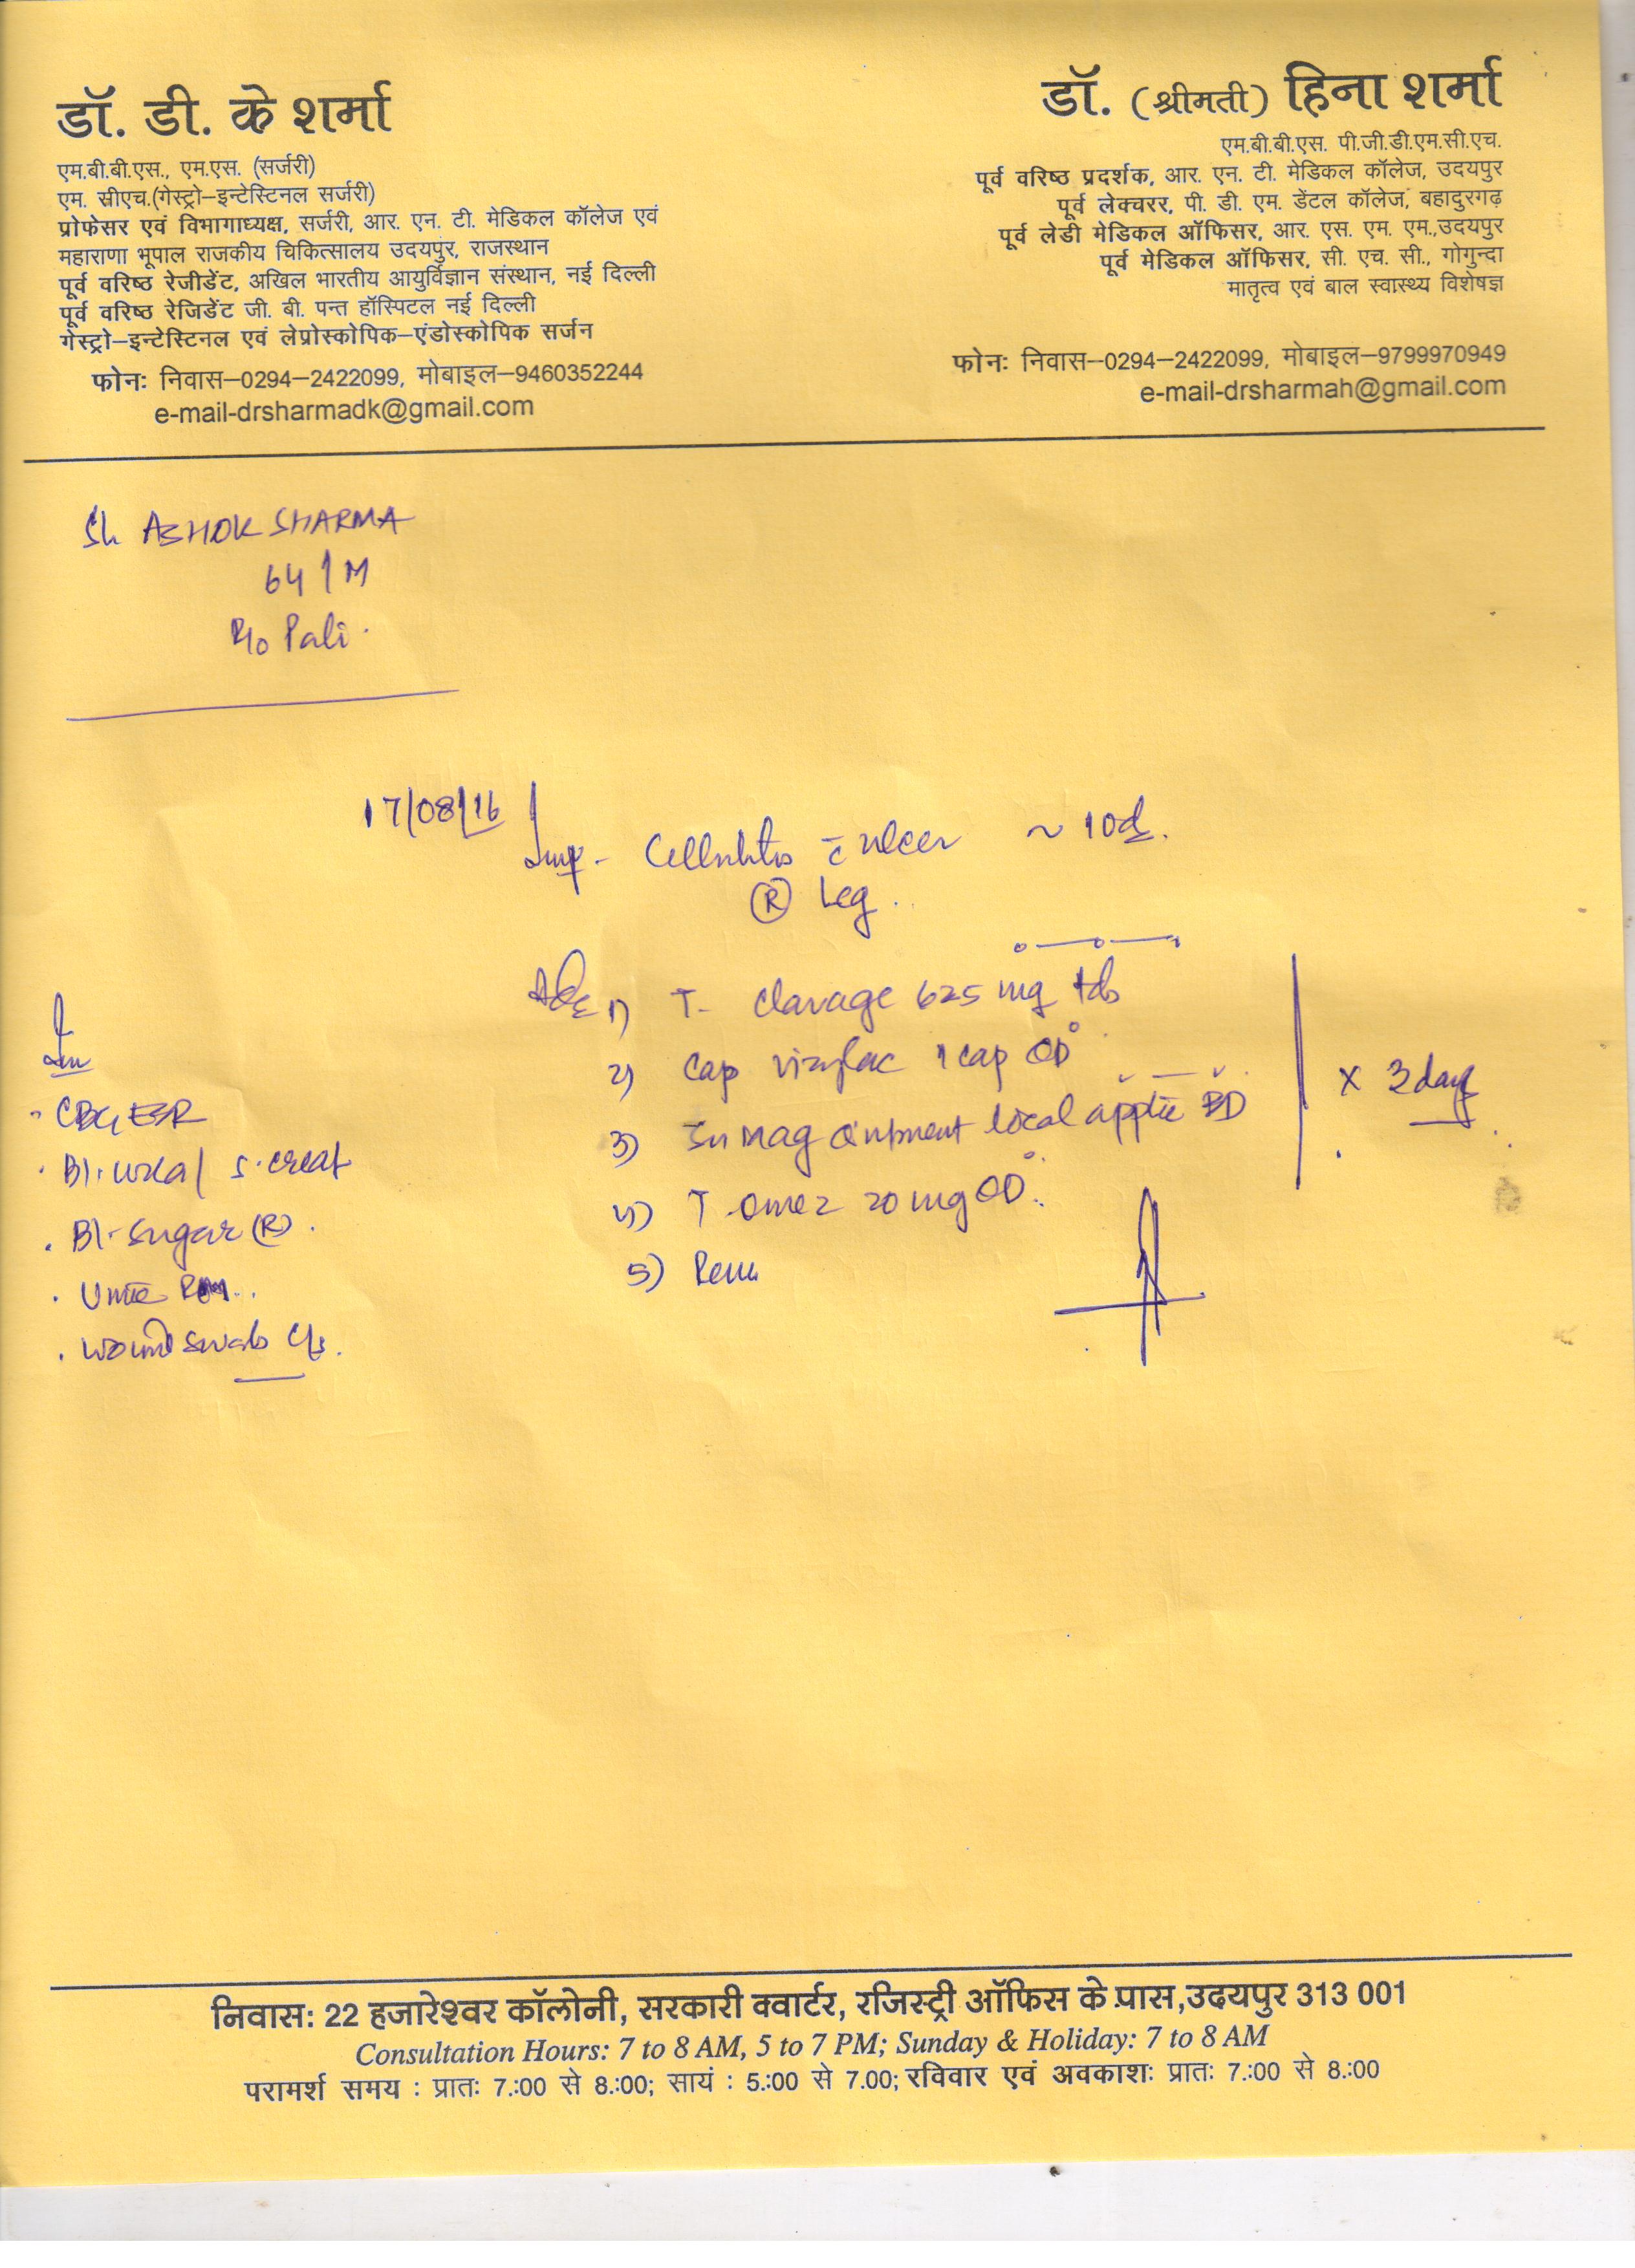 डॉ. डी. के शर्मा
एम.बी.बी.एस., एम.एस. (सर्जरी)
एम. सीएच.(गेस्ट्रो–इन्टेस्टिनल सर्जरी)
प्रोफेसर एवं विभागाध्यक्ष, सर्जरी, आर. एन. टी. मेडिकल कॉलेज एवं
महाराणा भूपाल राजकीय चिकित्सालय उदयपुर, राजस्थान
पूर्व वरिष्ठ रेजीडेंट, अखिल भारतीय आयुर्विज्ञान संस्थान, नई दिल्ली
पूर्व वरिष्ठ रेजिडेंट जी. बी. पन्त हॉस्पिटल नई दिल्ली
गेस्ट्रो–इन्टेस्टिनल एवं लेप्रोस्कोपिक–एंडोस्कोपिक सर्जन
फोनः निवास–0294–2422099, मोबाइल–9460352244
e-mail-drsharmadk@gmail.com
डॉ. (श्रीमती) हिना शर्मा
एम.बी.बी.एस. पी.जी.डी.एम.सी.एच.
पूर्व वरिष्ठ प्रदर्शक, आर. एन. टी. मेडिकल कॉलेज, उदयपुर
पूर्व लेक्चरर, पी. डी. एम. डेंटल कॉलेज, बहादुरगढ़
पूर्व लेडी मेडिकल ऑफिसर, आर. एस. एम. एम.,उदयपुर
पूर्व मेडिकल ऑफिसर, सी. एच. सी., गोगुन्दा
मातृत्व एवं बाल स्वास्थ्य विशेषज्ञ
फोनः निवास–0294–2422099, मोबाइल–9799970949
e-mail-drsharmah@gmail.com
Sh ASHOK SHARMA
64/M
R/o Pali.
17/08/16
Imp - Cellulitis c̄ ulcer ~ 10d.
Ⓡ Leg
Adv 1) T- Clavage 625 mg tds
2) Cap vizylac 1 cap OD
3) Sumag ointment local applic BD
4) T Omez 20 mg OD.
5)
x 3 days
Inv
CBC, ESR
Bl. urea / S. creat
Bl- sugar (R).
Urine
wound swab C/s.
निवासः 22 हजारेश्वर कॉलोनी, सरकारी क्वार्टर, रजिस्ट्री ऑफिस के पास,उदयपुर 313 001
Consultation Hours: 7 to 8 AM, 5 to 7 PM; Sunday & Holiday: 7 to 8 AM
परामर्श समय : प्रातः 7.:00 से 8.:00; सायं : 5.:00 से 7.00; रविवार एवं अवकाशः प्रातः 7.:00 से 8.:00